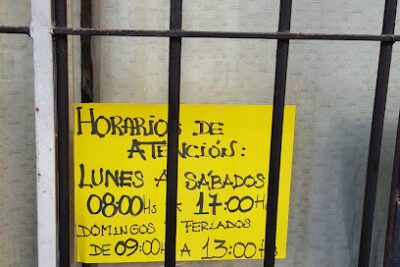 HORARIOS DE
ATENCIÓN:
LUNES A SÁBADOS
08:00 Hs A 17:00 Hs
DOMINGOS Y FERIADOS
DE 09:00 Hs A 13:00 Hs